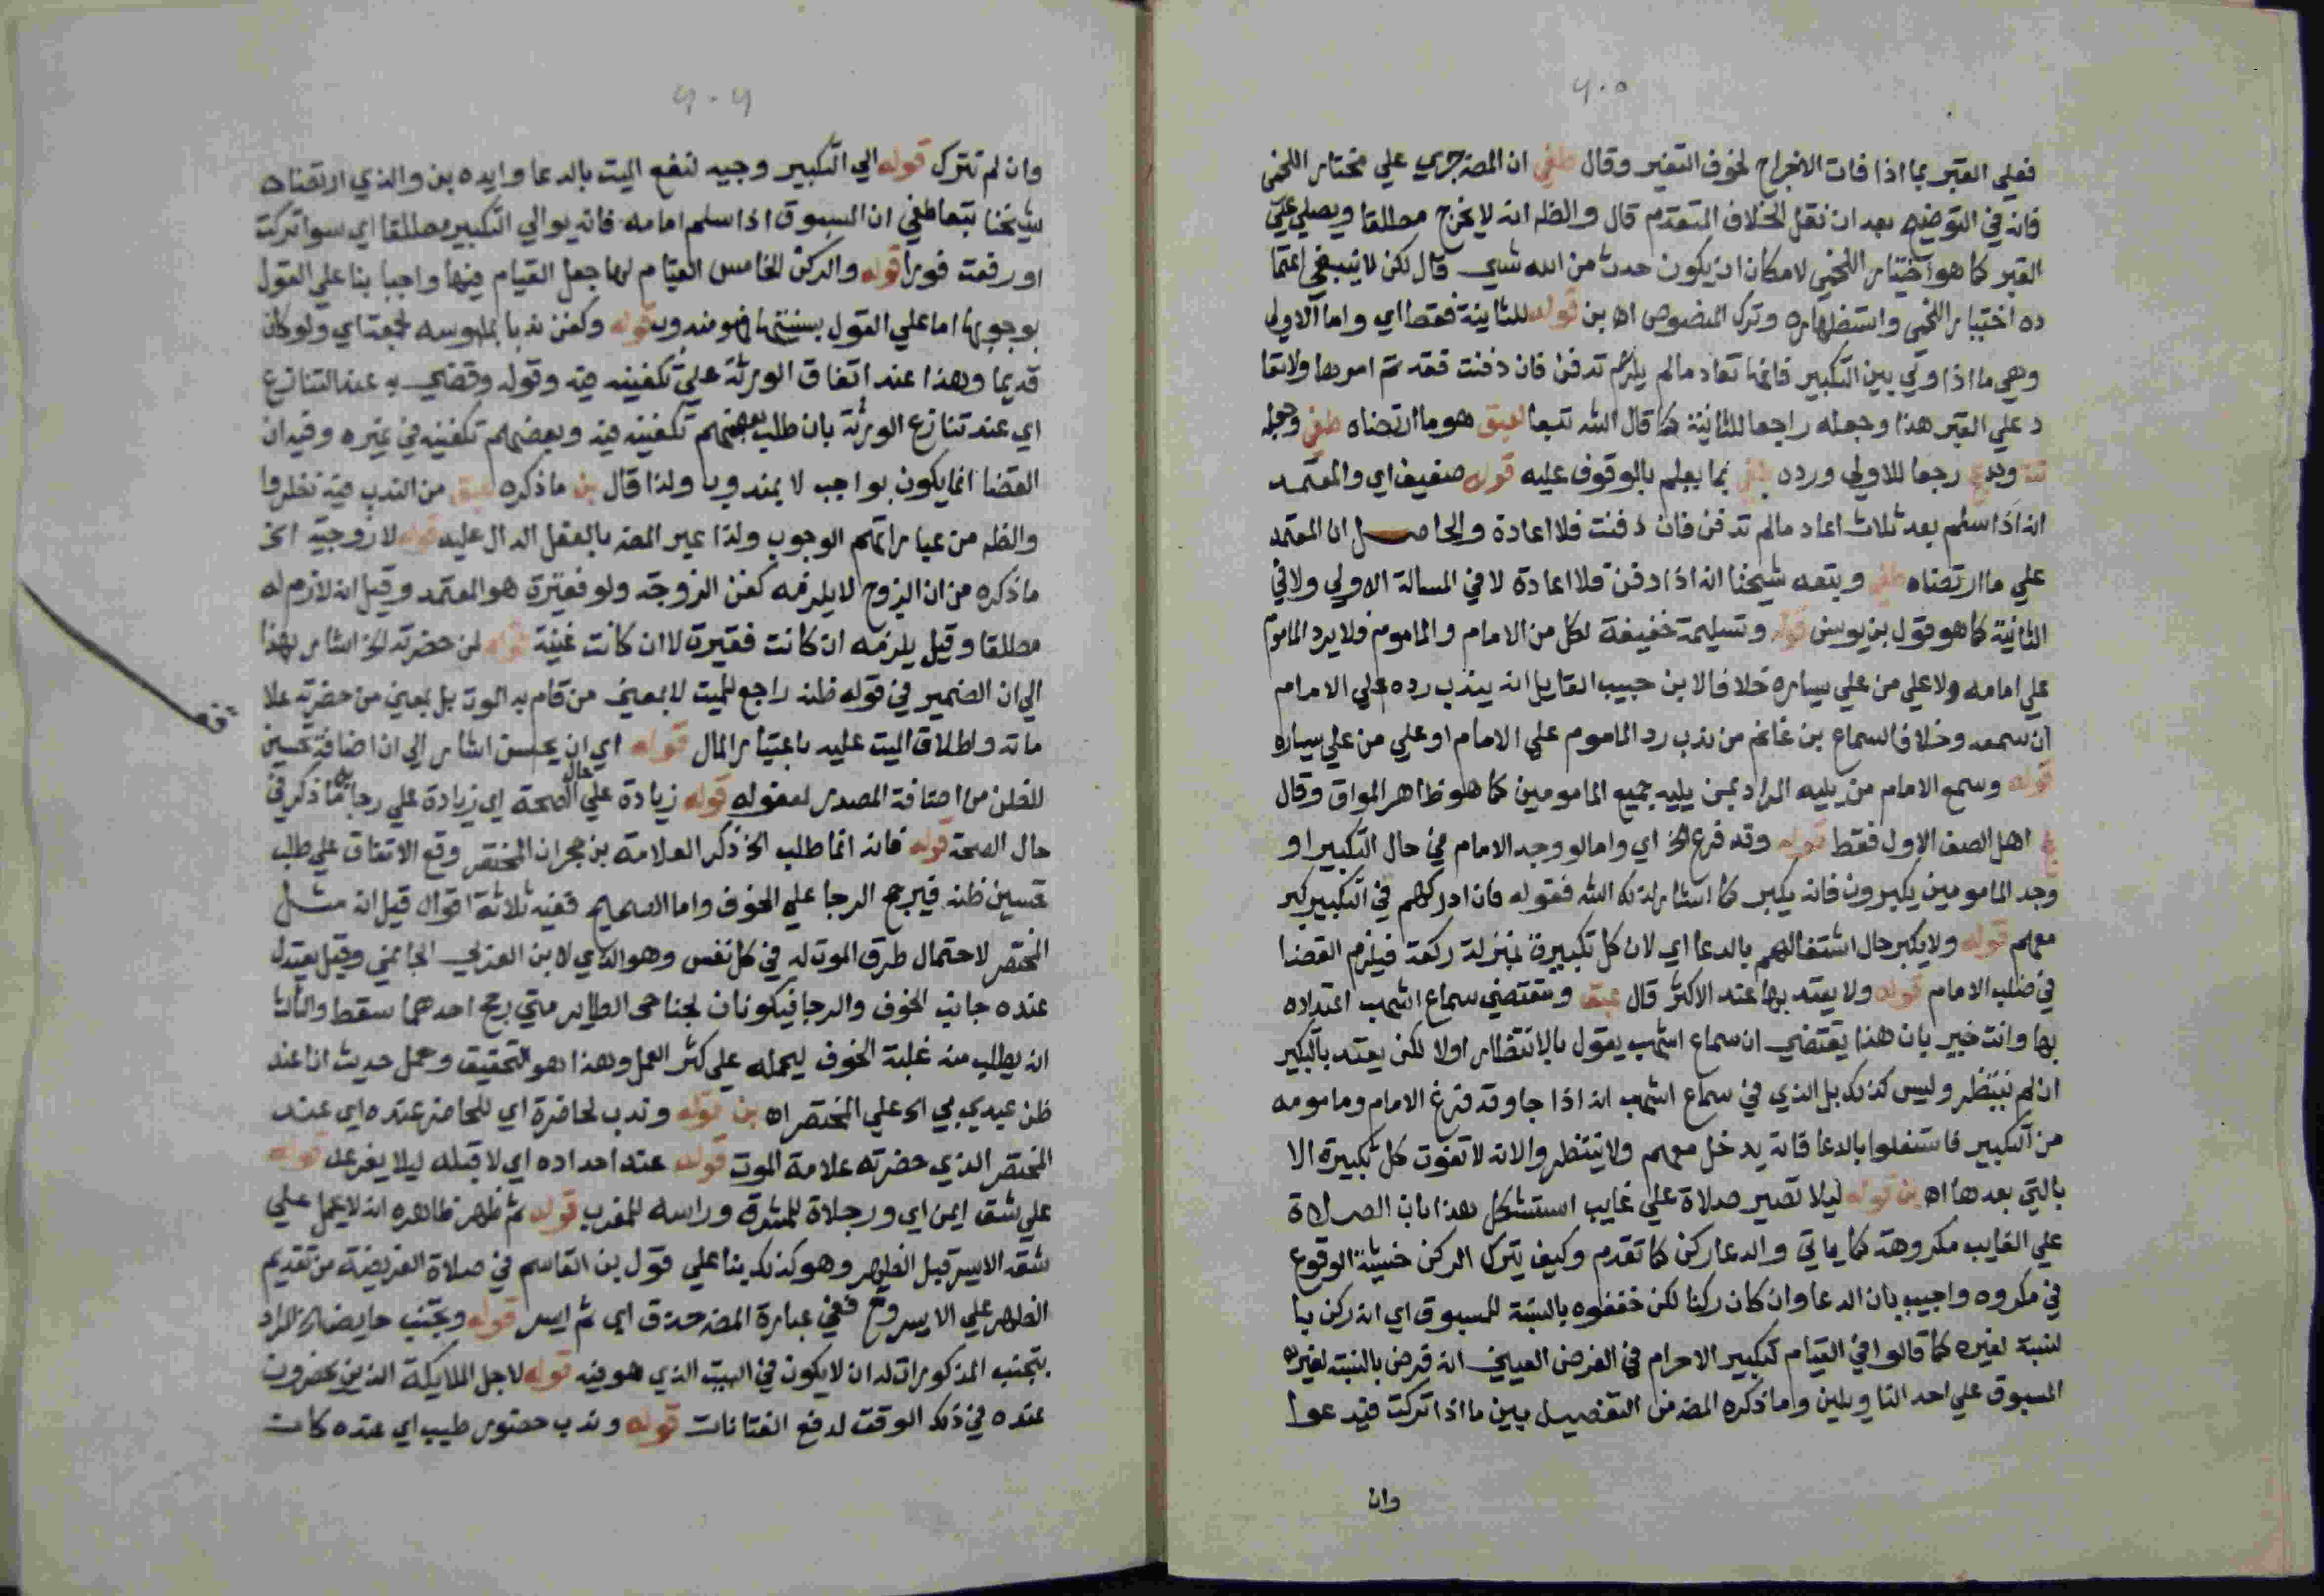 ٢٠٥
فعلي القبر بما اذا فات الاخراج لخوف التغير وقال طفي ان المصه جري علي مختار اللخمى
فانه في التوضيح بعد ان نقل الخلاف المتقدم قال والظه انه لا يخرج مطلقا ويصلي علي
القبر كما هو اختيار اللخمي لامكان ان يكون حدث من الله شي قال لكن لا ينبغي اعتما
ده اختيار اللخمى واستظهاره وترك المنصوص اه بن قوله للثانية فقط اي واما الاولي
وهي ما اذا والي بين التكبير فانها تعاد ما لم تدفن فان دفنت فقد تم امرها ولا تعا
د علي القبر هذا وجعله راجعا للثانية كما قال الشه تبعا لعبق هو ما ارتضاه طفي وجعله
تت رجعا للاولي ورده طفي بما يعلم بالوقوف عليه قوله ضعيف اي والمعتمد
انه اذا سلم بعد ثلاث اعاد ما لم تدفن فان دفنت فلا اعادة والحاصل ان المعتمد
علي ما ارتضاه طفي وتبعه شيخنا انه اذا دفن فلا اعادة لا في المسالة الاولي ولا في
الثانية كما هو قول بن يونس قوله وتسليمة خفيفة لكل من الامام والماموم فلا يرد الماموم
علي امامه ولا علي من علي يساره خلافا لابن حبيب القايل انه يندب رده علي الامام
ان سمعه وخلافا لسماع بن غانم من ندب رد الماموم علي الامام او علي من علي يساره
قوله وسمع الامام من يليه المراد بمن يليه جميع المامومين كما هو ظاهر المواق وقال
عج اهل الصف الاول فقط قوله وقد فرغ الخ اي واما لو وجد الامام في حال التكبير او
وجد المامومين يكبرون فانه يكبر كما اشار لذلك الشه فقوله فان ادركهم في التكبير كبر
معهم قوله ولا يكبر حال اشتغالهم بالدعا اي لان كل تكبيرة بمنزلة ركعة فيلزم القضا
في صلب الامام قوله ولا يعتد بها عند الاكثر قال عبق ومقتضي سماع اشهب اعتداده
بها وانت خبير بان هذا يقتضي ان سماع اشهب يقول بالانتظار اولا لكن يعتد بالتكبير
ان لم ينتظر وليس كذلك بل الذي في سماع اشهب انه اذا جا وقد فرغ الامام ومامومه
من التكبير فاشتغلوا بالدعا فانه يدخل معهم ولا ينتظر والا انه لا تفوت كل تكبيرة الا
بالتي بعدها اه بن قوله ليلا تصير صلاة علي غايب استشكل هذا بان الصلاة
علي الغايب مكروهة كما ياتي والدعا ركن كما تقدم وكيف يترك الركن خشية الوقوع
في مكروه واجيب بان الدعا وان كان ركنا لكن خففوه بالنسبة للمسبوق اي انه ركن با
لنسبة لغيره كما قالوا في القيام لتكبير الاحرام في الفرض العيني انه فرض بالنسبة لغير
المسبوق علي احد التاويلين وما ذكره المصه من التفصيل بين ما اذا تركت فيدعوا
وان
٢٠٦
وان لم تترك قوله الي التكبير وجيه لنفع الميت بالدعا وايده بن والذي ارتضاه
شيخنا تبعا طفي ان المسبوق اذا سلم امامه فانه يوالي التكبير مطلقا اي سوا تركت
او رفعت فورا قوله والركن الخامس القيام لها جعل القيام فيها واجبا بنا علي القول
بوجوبها اما علي القول بسنيتها فهو مندوب قوله وكفن ندبا بملبوسه لجمعة اي ولو كان
قديما وهذا عند اتفاق الورثة علي تكفينه فيه وقوله وقضي به عند التنازع
اي عند تنازع الورثة بان طلب بعضهم تكفينه فيه وبعضهم تكفينه في غيره وفيه ان
القضا انما يكون بواجب لا بمندوب ولذا قال بن ما ذكره عبق من الندب فيه نظر وا
والظه من عباراتهم الوجوب ولذا عبر المصه بالفعل الدال عليه قوله لا زوجية الخ
ما ذكره من ان الزوج لا يلزمه كفن الزوجة ولو فقيرة هو المعتمد وقيل انه لازم له
مطلقا وقيل يلزمه ان كانت فقيرة لا ان كانت غنية قوله لمن حضرته الخ اشار بهذا
الي ان الضمير في قوله ظنه راجع للميت لا بمعني من قام به الموت بل بمعني من حضرته علا
ماته واطلاق الميت عليه باعتبار المال قوله اي ان يحسن اشار الي ان اضافة تحسين
للظن من اضافة المصدر لمفعوله قوله زيادة علي حال الصحة اي زيادة علي رجا ما ذكر في
حال الصحة قوله فانه انما طلب الخ ذكر العلامة بن حجر ان المختضر وقع الاتفاق علي طلب
تحسين ظنه فيرجح الرجا علي الخوف واما الصحيح ففيه ثلاثة اقوال قيل انه مثل
المختصر لاحتمال طرق الموت له في كل نفس وهو الذي لابن العربي وقيل يعتدل
عنده جانب الخوف والرجا فيكونان كجناحي الطاير متي رجح احدهما سقط والثالث
انه يطلب منه غلبة الخوف ليحمله علي كثر العمل وهذا هو التحقيق وحمل حديث انا عند
ظن عبدي بي الخ علي المختصر اه بن قوله وندب لحاضرة اي للحاضر عنده اي عند
المختصر الذي حضرته علامة الموت قوله عند احداده اي لا قبله ليلا يفزعه قوله
علي شق ايمن اي ورجلاه للمشرق وراسه للمغرب قوله ثم ظهر ظاهره انه لا يجعل علي
شقه الايسر قبل الظهر وهو كذلك بنا علي قول بن القاسم في صلاة الفريضة من تقديم
الظهر علي الايسر وح ففي عبارة المصه حذف اي ثم ايسر قوله وتجنب حايض الخ المراد
بتجنب المذكورات له ان لا يكون في البيت الذي هو فيه قوله لاجل الملايكة الذين يحضرون
عنده في ذلك الوقت لدفع الفتانات قوله وندب حضور طيب اي عنده كانت